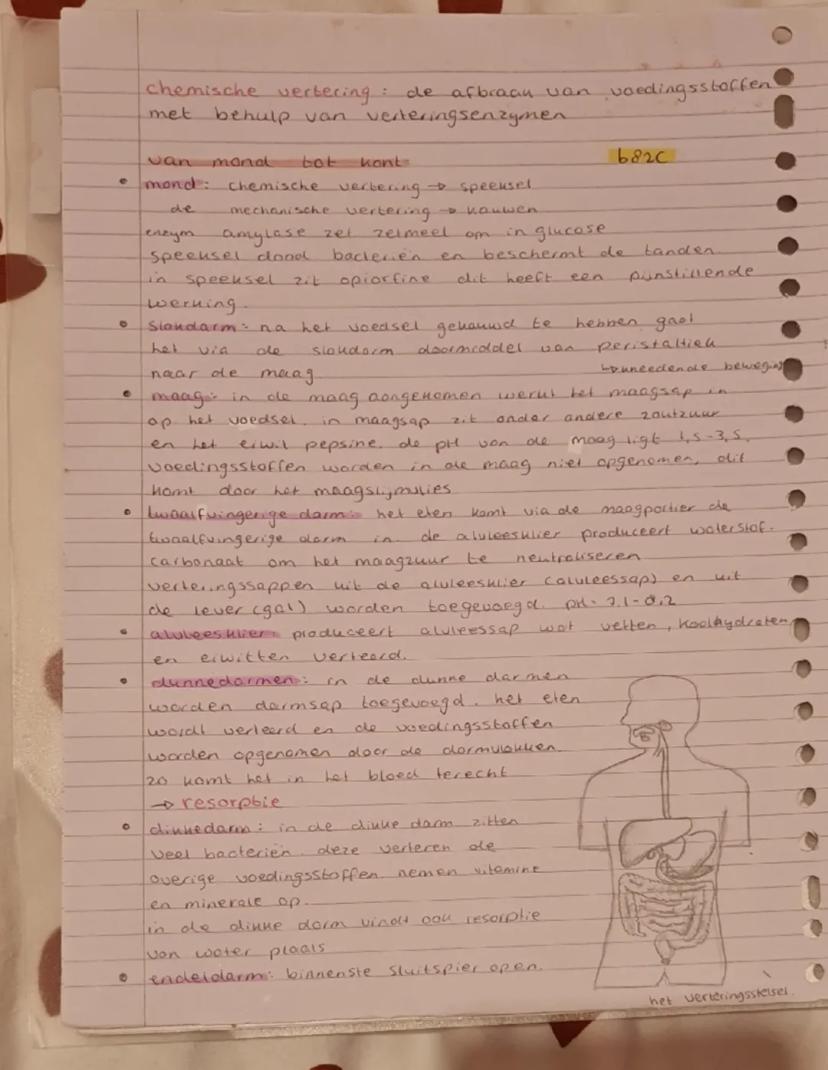 chemische vertering: de afbraak van voedingsstoffen
met behulp van verteringsenzymen
van mond tot kont b82C
• mond: chemische vertering → speeksel
de mechanische vertering → kauwen
enzym amylase zet zetmeel om in glucose
speeksel dood bacteriën en beschermt de tanden
in speeksel zit opiorfine dit heeft een pijnstillende
werking.
• slokdarm: na het voedsel gekauwd te hebben gaat
het via de slokdarm doormiddel van peristaltiek
naar de maag ↳ kneedende beweging
• maag: in de maag aangenomen werkt het maagsap in
op het voedsel. in maagsap zit onder andere zoutzuur
en het eiwit pepsine. de pH van de maag ligt 1,5-3,5.
voedingsstoffen worden in de maag niet opgenomen, dit
komt door het maagslijmvlies
• twaalfvingerige darm: het eten komt via de maagportier de
twaalfvingerige darm in. de alvleesklier produceert waterstof-
carbonaat om het maagzuur te neutraliseren
verteringssappen uit de alvleesklier (alvleessap) en uit
de lever (gal) worden toegevoegd. pH- 7.1-8,2
• alvleesklier: produceert alvleessap wat vetten, koolhydraten
en eiwitten verteerd.
• dunnedarmen: in de dunne darmen
worden darmsap toegevoegd. het eten
wordt verteerd en de voedingsstoffen
worden opgenomen door de darmvlokken.
zo komt het in het bloed terecht
→ resorptie
• dikkedarm: in de dikke darm zitten
veel bacteriën. deze verteren de
overige voedingsstoffen. nemen vitamine
en minerale op.
in de dikke darm vindt ook resorptie
van water plaats
• endeldarm: binnenste sluitspier open.
het verteringsstelsel.